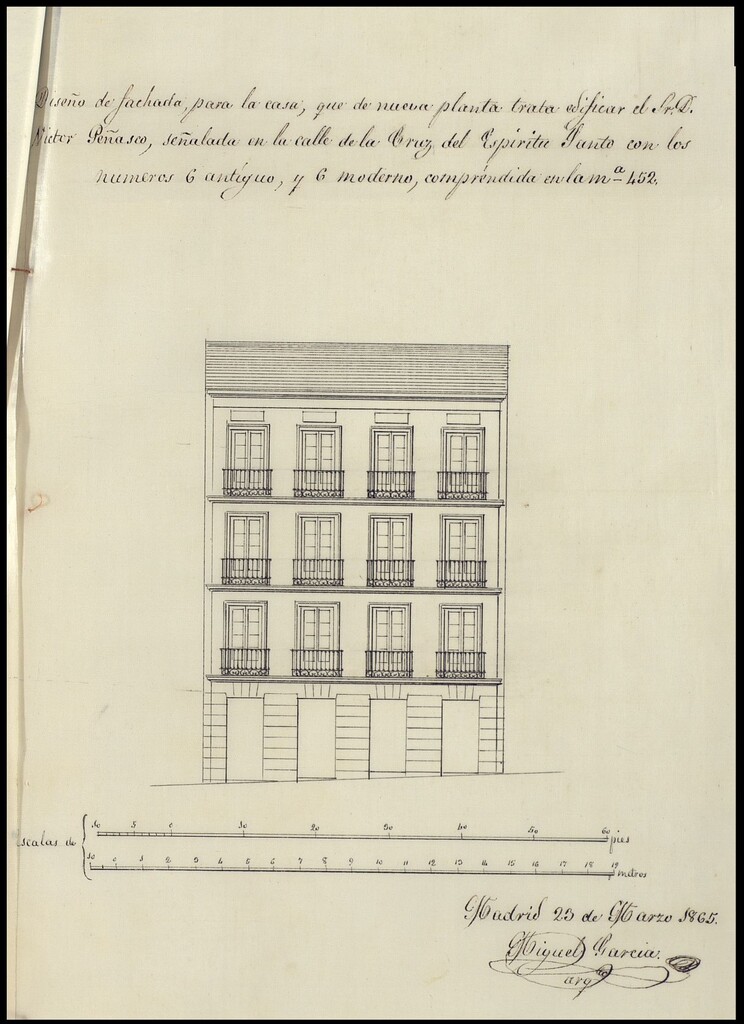 Diseño de fachada, para la casa, que de nueva planta trata edificar el Sr. D.
Victor Peñasco, señalada en la calle de la Cruz del Espiritu Santo con los
numeros 6 antíguo, y 6 moderno, compréndida en la m.ª 452.
Escalas de
10 5 0 10 20 30 40 50 60 pies
10 0 1 2 3 4 5 6 7 8 9 10 11 12 13 14 15 16 17 18 19 metros
Madrid 23 de Marzo 1865.
Miguel Garcia.
arqto